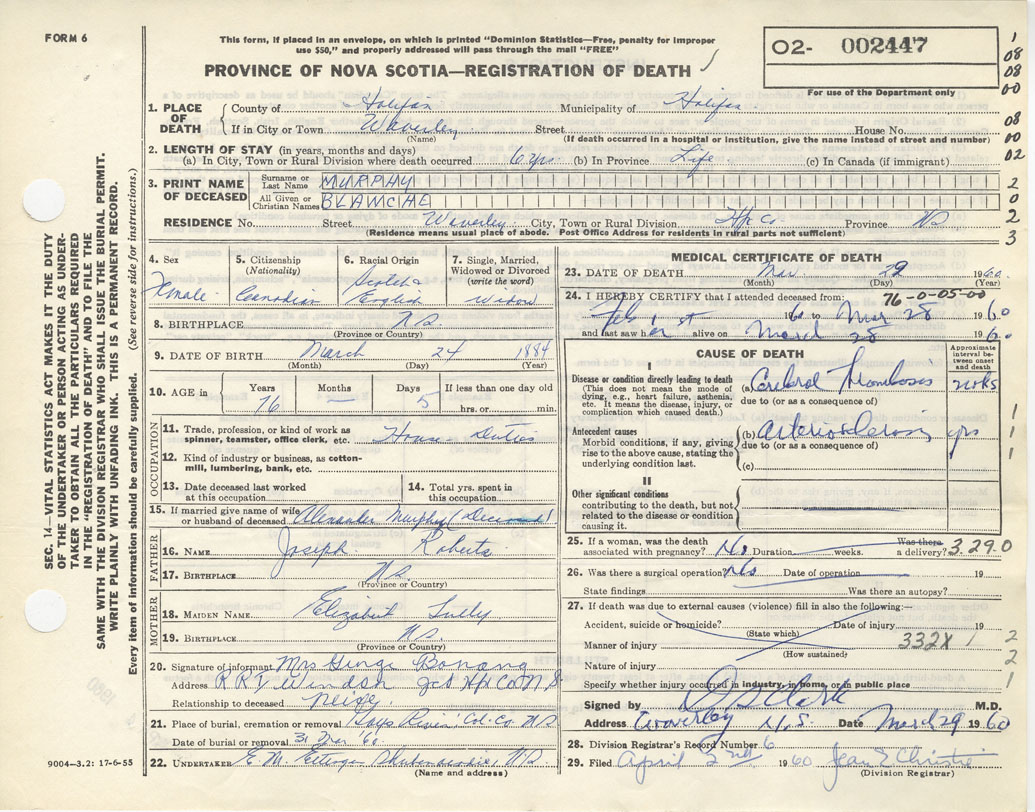 FORM 6
This form, if placed in an envelope, on which is printed "Dominion Statistics—Free, penalty for improper
use $50," and properly addressed will pass through the mail "FREE"
PROVINCE OF NOVA SCOTIA—REGISTRATION OF DEATH
02- 002447
For use of the Department only
1
08
08
00
08
00
02
2
0
2
3
1. PLACE OF DEATH County of Halifax Municipality of Halifax
If in City or Town Waverley Street House No.
(Name) (If death occurred in a hospital or institution, give the name instead of street and number)
2. LENGTH OF STAY (in years, months and days)
(a) In City, Town or Rural Division where death occurred 6 yrs (b) In Province Life (c) In Canada (if immigrant)
3. PRINT NAME OF DECEASED Surname or Last Name MURPHY
All Given or Christian Names BLANCHE
RESIDENCE No. Street Waverley City, Town or Rural Division Hfx Co. Province NS
(Residence means usual place of abode. Post Office Address for residents in rural parts not sufficient)
4. Sex 5. Citizenship (Nationality) 6. Racial Origin 7. Single, Married, Widowed or Divorced (write the word)
Female Canadian Scotch English Widow
8. BIRTHPLACE N.S.
(Province or Country)
9. DATE OF BIRTH March 24 1884
(Month) (Day) (Year)
10. AGE in Years Months Days If less than one day old
76 — 5 hrs. or min.
OCCUPATION
11. Trade, profession, or kind of work as
spinner, teamster, office clerk, etc. House Duties
12. Kind of industry or business, as cotton-
mill, lumbering, bank, etc.
13. Date deceased last worked at this occupation 14. Total yrs. spent in this occupation
15. If married give name of wife
or husband of deceased Alexander Murphy (Deceased)
FATHER
16. NAME Joseph Roberts
17. BIRTHPLACE N.S.
(Province or Country)
MOTHER
18. MAIDEN NAME Elizabeth
19. BIRTHPLACE N.S.
(Province or Country)
20. Signature of informant Mrs George Bonang
Address R R 1 Windsor Jct Hfx Co N.S.
Relationship to deceased
21. Place of burial, cremation or removal Col. Co. NS
Date of burial or removal 31 Mar '60
22. UNDERTAKER E. M. Shubenacadie, N.S.
(Name and address)
9004—3.2: 17-6-55
MEDICAL CERTIFICATE OF DEATH
23. DATE OF DEATH Mar. 29 1960
(Month) (Day) (Year)
76-0-05-00
24. I HEREBY CERTIFY that I attended deceased from:
Feb 1st 1960 to Mar 28 1960
and last saw her alive on March 28 1960
CAUSE OF DEATH
Approximate interval between onset and death
I
Disease or condition directly leading to death
(This does not mean the mode of
dying, e.g., heart failure, asthenia,
etc. It means the disease, injury, or
complication which caused death.)
(a) Cerebral Thrombosis
due to (or as a consequence of)
Antecedent causes
Morbid conditions, if any, giving
rise to the above cause, stating the
underlying condition last.
(b) Arteriosclerosis yrs
due to (or as a consequence of)
(c)
1
1
1
II
Other significant conditions
contributing to the death, but not
related to the disease or condition
causing it.
25. If a woman, was the death Was there
associated with pregnancy? No Duration weeks. a delivery? 3.29.0
26. Was there a surgical operation? No Date of operation 19
State findings Was there an autopsy?
27. If death was due to external causes (violence) fill in also the following:—
Accident, suicide or homicide? Date of injury 19
(State which)
Manner of injury 332X 1
(How sustained)
Nature of injury
Specify whether injury occurred in industry, in home, or in public place
2
2
1
Signed by D S Clark M.D.
Address Waverley N.S. Date March 29 1960
28. Division Registrar's Record Number 6
29. Filed April 2nd 1960 Jean E Christie
(Division Registrar)
SEC. 14—VITAL STATISTICS ACT MAKES IT THE DUTY
OF THE UNDERTAKER OR PERSON ACTING AS UNDER-
TAKER TO OBTAIN ALL THE PARTICULARS REQUIRED
IN THE "REGISTRATION OF DEATH" AND TO FILE THE
SAME WITH THE DIVISION REGISTRAR WHO SHALL ISSUE THE BURIAL PERMIT.
WRITE PLAINLY WITH UNFADING INK. THIS IS A PERMANENT RECORD.
Every item of information should be carefully supplied. (See reverse side for instructions.)